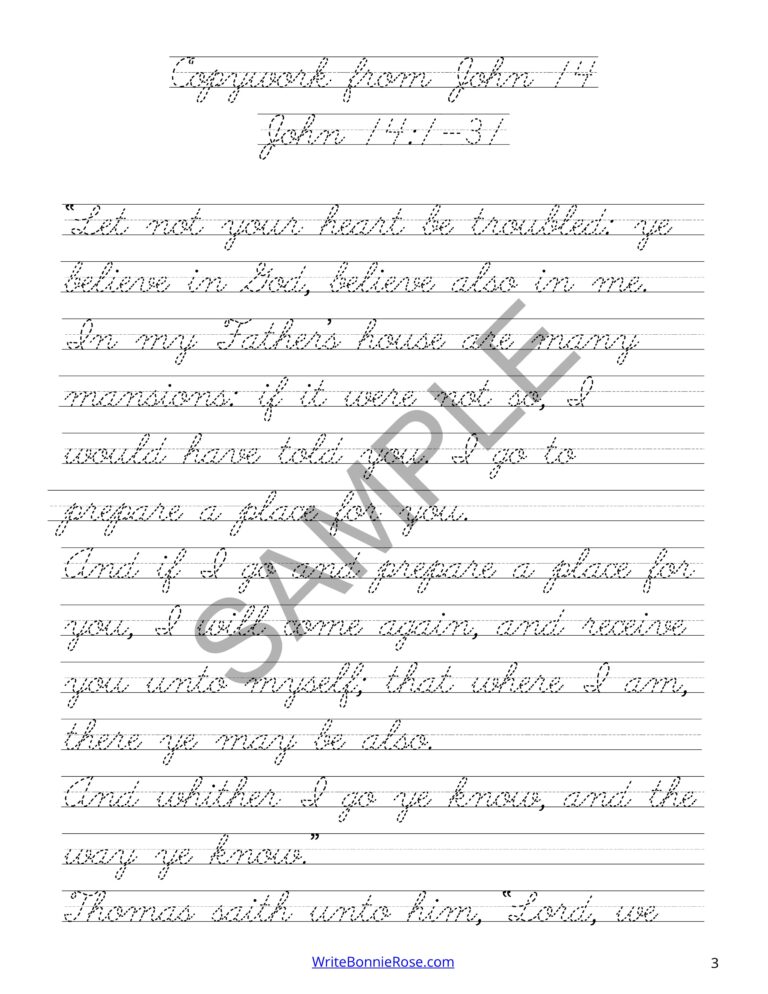 Copywork from John 14
John 14:1-31
“Let not your heart be troubled: ye
believe in God, believe also in me.
In my Father’s house are many
mansions: if it were not so, I
would have told you. I go to
prepare a place for you.
And if I go and prepare a place for
you, I will come again, and receive
you unto myself; that where I am,
there ye may be also.
And whither I go ye know, and the
way ye know.”
Thomas saith unto him, “Lord, we
SAMPLE
WriteBonnieRose.com
3